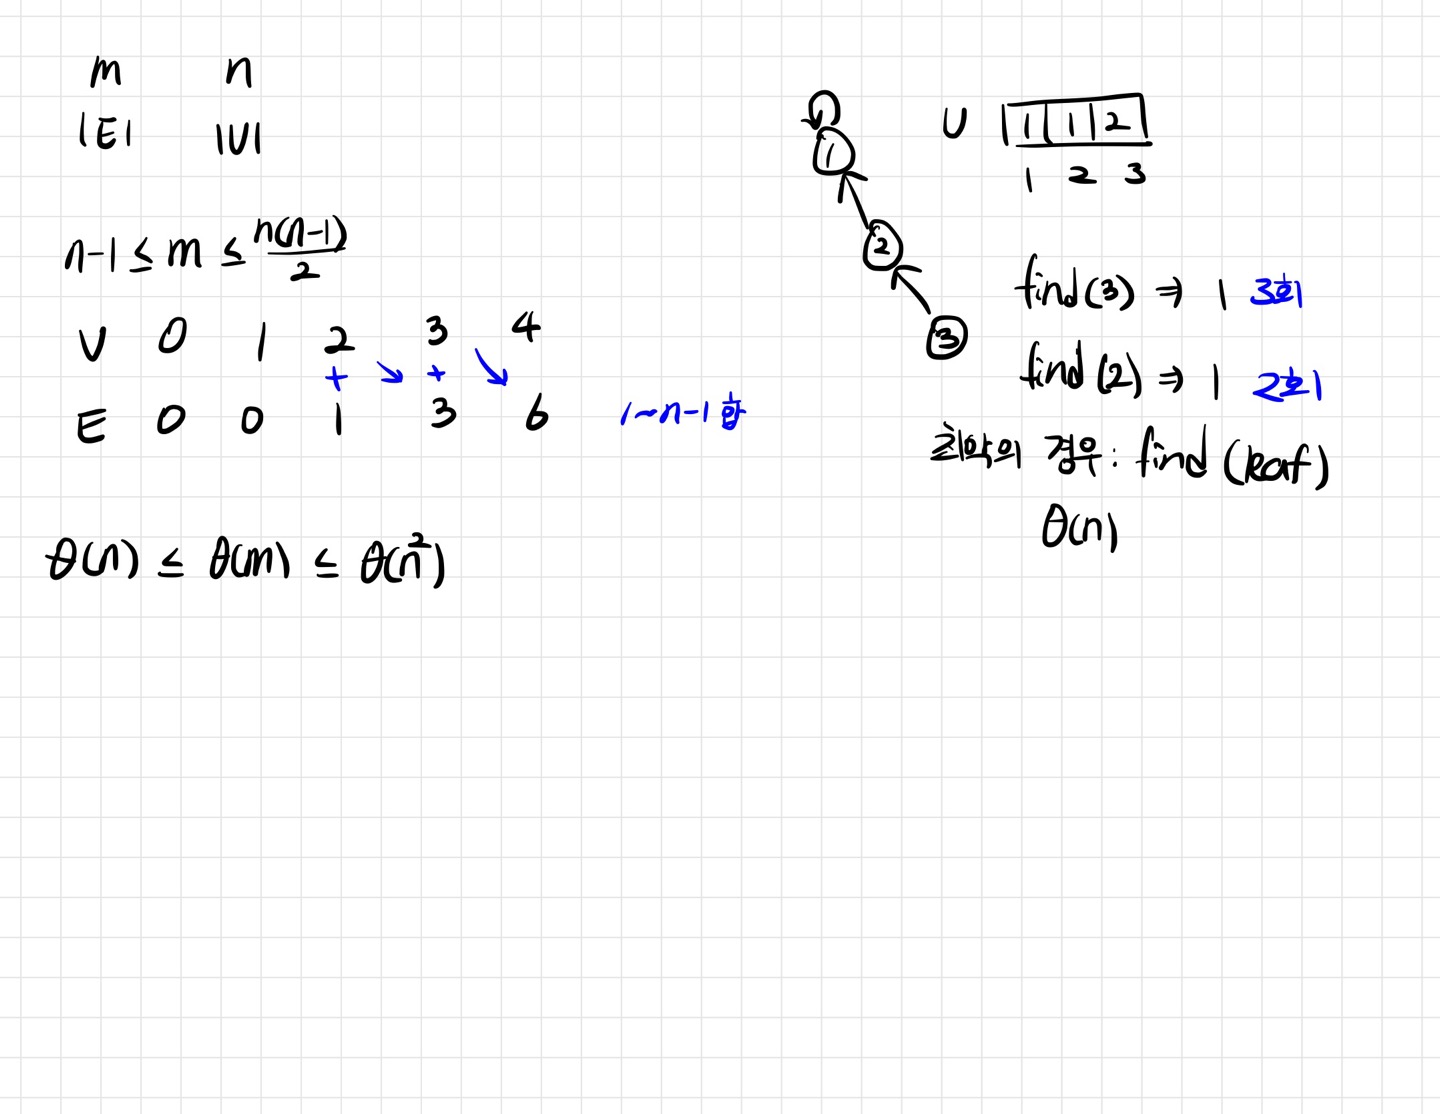 m n
|E| |V|
n-1 ≤ m ≤ n(n-1)/2
V 0 1 2 3 4
+ ↘ + ↘
E 0 0 1 3 6 1~n-1 합
θ(n) ≤ θ(m) ≤ θ(n²)
1
2
3
U | 1 | 1 | 2 |
1 2 3
find(3) ⇒ 1 3회
find(2) ⇒ 1 2회
최악의 경우: find(leaf)
θ(n)